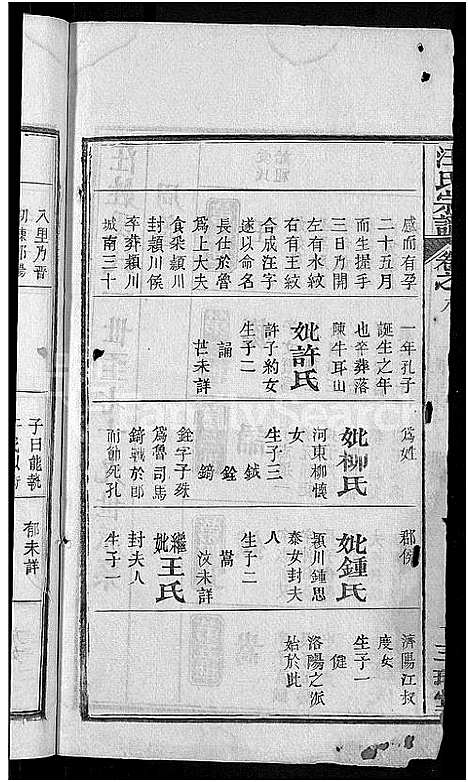 汪氏宗譜
卷之
感而有孕
二十五月
而生提手
三日乃開
左有水紋
右有王紋
合成汪字
遂以命名
長仕於魯
爲上大夫
食采潁川
封潁川侯
卒葬潁川
城南三十
一年孔子
誕生之年
也辛葬落
陳牛耳山
妣許氏
許子約女
生子二
誦
芒未詳
爲姓
妣柳氏
河東柳懷
女
生子三
鉞
銓
錡
銓字子殊
爲魯司馬
錡戰於郎
而動死孔
郡侯
妣鍾氏
潁川鍾思
泰女封夫
人
生子二
嵩
汶未詳
繼妣王氏
封夫人
生子一
濟陽江叔
度女
生子一
健
洛陽之派
始於此
入里乃晉
子曰能執
郁未詳